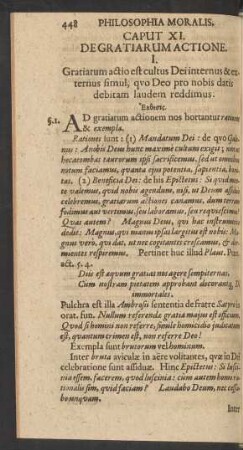 448 PHILOSOPHIA MORALIS,
CAPUT XI.
DE GRATIARUM ACTIONE.
I.
Gratiarum actio est cultus Dei internus & ex-
ternus simul, qvo Deo pro nobis datis
debitam laudem reddimus.
§.1. AD gratiarum actionem nos hortantur rationes
& exempla.
Rationes sunt: (1) Mandatum Dei: de qvo
nus: A nobis Deus hunc maxime cultum exigit; non
hecatombas taurorum ipsi sacrificemus, sed ut omnibus
notum faciamus, quanta ejus potentia, sapientia, boni-
tas. (2) Beneficia Dei: de his Epictetus: Si quid men-
te valemus, quid nobis agendum, nisi, ut Deum assidue
celebremus, gratiarum actiones canamus, dum terram
fodimus aut vertimus, seu laboramus, seu requiescimus?
Quas autem? Magnus Deus, qui hac instrumenta
dedit: Magnus, qui manus ipsas largitus est nobis: Ma-
gnus vero, qui dat, ut nec cogitantes crescamus, & dor-
mientes respiremus. Pertinet huc illud Plaut. Pœn.
act. 5. 4.
Diis est aqvum gratias nos agere sempiternas,
Cum nostram pietatem approbant decorantq, Di
immortales.
Pulchra est illa Ambrosii sententia de fratre Satyro in
orat. fun. Nullum referenda gratia majus est officium.
Quod si homini non referre, simile homicidio judicatum
est, quantum crimen est, non referre Deo!
Exempla sunt brutorum vel hominum.
Inter bruta aviculæ in aëre volitantes, quæ in Dei
celebratione sunt assiduæ. Hinc Epictetus: Si lusci-
nia essem, facerem, quod luscinia: cum autem homo ra-
tionalis sim, quid faciam? Laudabo Deum, nec cessa-
bo unquam.
Inter